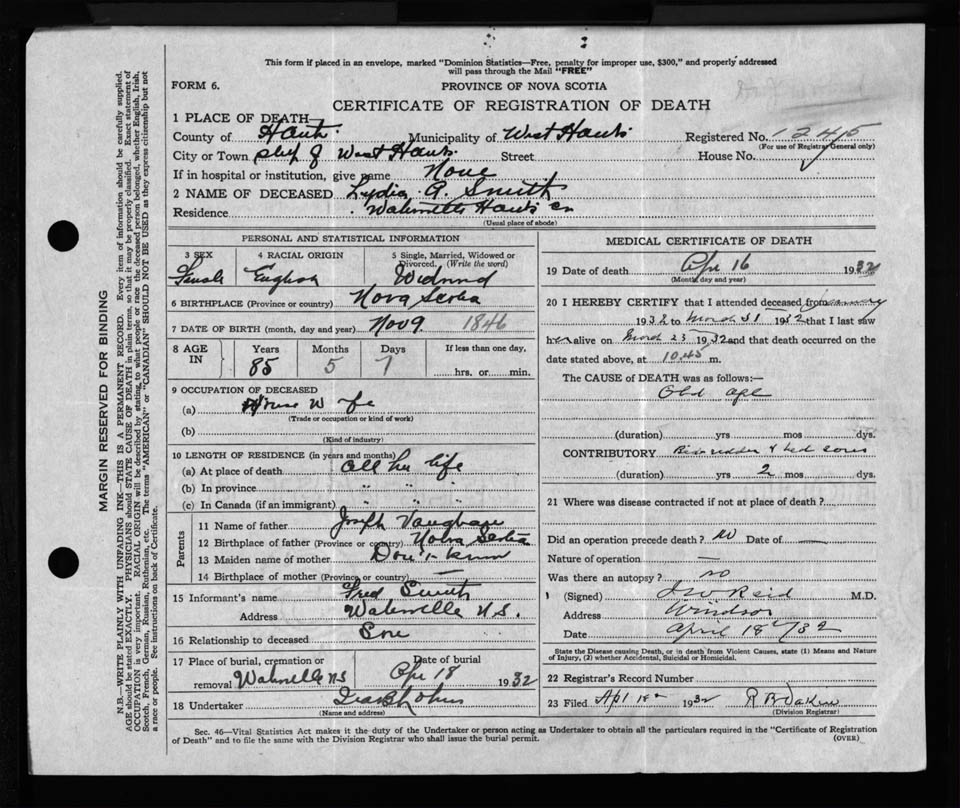 This form if placed in an envelope, marked "Dominion Statistics—Free, penalty for improper use, $300," and properly addressed
will pass through the Mail "FREE"
FORM 6.
PROVINCE OF NOVA SCOTIA
CERTIFICATE OF REGISTRATION OF DEATH
1 PLACE OF DEATH
County of Hants Municipality of West Hants Registered No. 1245
(For use of Registrar General only)
City or Town West Hants Street House No.
If in hospital or institution, give name None
2 NAME OF DECEASED Lydia A. Smith
Residence Hants Co
(Usual place of abode)
PERSONAL AND STATISTICAL INFORMATION
3 SEX 4 RACIAL ORIGIN 5 Single, Married, Widowed or
Divorced. (Write the word)
Female English Widowed
6 BIRTHPLACE (Province or country) Nova Scotia
7 DATE OF BIRTH (month, day and year) Nov 9 1846
8 AGE IN Years Months Days If less than one day,
85 5 7 hrs. or min.
9 OCCUPATION OF DECEASED
(a) House Wife
(Trade or occupation or kind of work)
(b)
(Kind of industry)
10 LENGTH OF RESIDENCE (in years and months)
(a) At place of death All her life
(b) In province " " "
(c) In Canada (if an immigrant) " " "
Parents
11 Name of father Joseph Vaughan
12 Birthplace of father (Province or country) Nova Scotia
13 Maiden name of mother Don't know
14 Birthplace of mother (Province or country) —
15 Informant's name Fred Smith
Address N.S.
16 Relationship to deceased Son
17 Place of burial, cremation or removal N S
Date of burial Apr 18 1932
18 Undertaker
(Name and address)
MEDICAL CERTIFICATE OF DEATH
19 Date of death Apr 16 1932
(Month, day and year)
20 I HEREBY CERTIFY that I attended deceased from
1932 to March 31 1932 that I last saw
her alive on March 23 1932 and that death occurred on the
date stated above, at 10.45 m.
The CAUSE of DEATH was as follows:—
Old age
(duration) yrs mos dys.
CONTRIBUTORY Bedridden & bed sores
(duration) yrs 2 mos dys.
21 Where was disease contracted if not at place of death?
Did an operation precede death? no Date of —
Nature of operation —
Was there an autopsy? no
(Signed) Reid M.D.
Address Windsor
Date April 18 / 32
State the Disease causing Death, or in death from Violent Causes, state (1) Means and Nature
of Injury, (2) whether Accidental, Suicidal or Homicidal.
22 Registrar's Record Number
23 Filed Apl 18 1932 R B
(Division Registrar)
Sec. 46—Vital Statistics Act makes it the duty of the Undertaker or person acting as Undertaker to obtain all the particulars required in the "Certificate of Registration
of Death" and to file the same with the Division Registrar who shall issue the burial permit.
(OVER)
MARGIN RESERVED FOR BINDING
N.B.—WRITE PLAINLY WITH UNFADING INK—THIS IS A PERMANENT RECORD. Every item of information should be carefully supplied.
AGE should be stated EXACTLY. PHYSICIANS should STATE CAUSE OF DEATH in plain terms, so that it may be properly classified. Exact statement of
OCCUPATION is very important. RACIAL ORIGIN will be described by stating to what people or race the deceased person belonged, whether English, Irish,
Scotch, French, German, Russian, Ruthenian, etc. The terms "AMERICAN" or "CANADIAN" SHOULD NOT BE USED as they express citizenship but not
a race or people. See instructions on back of Certificate.